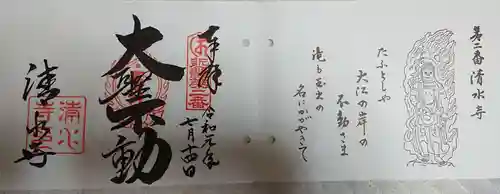 第二番清水寺
たふとしや
大江の岸の
不動さま
滝も玉出の
名にかがやきて
奉拝
令和元年
七月十四日
大聖不動
清水寺
清水
寺印